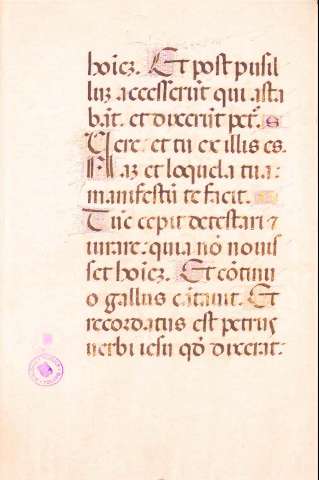 hoiez. Et post pusil
luz accesserūt qui asta
bāt. et dixerūt pet̄. s
Uere: et tu ex illis es.
Naz et loquela tua:
manifestū te facit.
Tūc cepit detestari ⁊
iurare: quia nō nouis
set hoiez. Et cōtinu
o gallus cātauit. Et
recordatus est petrus
uerbi iesu qd̄ dixerat: